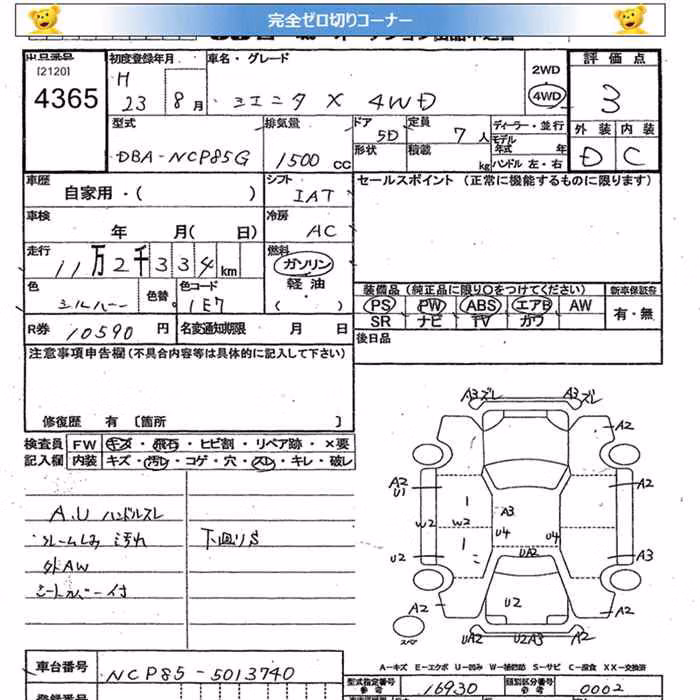 完全ゼロ切りコーナー
出品番号
[2120]
4365
初度登録年月
H
23 8月
車名・グレード
シエンタ X 4WD
2WD
4WD
評価点
3
外装 内装
D C
型式
DBA-NCP85G
排気量
1500 CC
ドア
5D
形状
定員
7人
積載
kg
ディーラー・並行
モデル
年式 年
ハンドル 左・右
車歴
自家用・( )
シフト
IAT
セールスポイント (正常に機能するものに限ります)
車検
年 月( 日)
冷房
AC
走行
11万2千334km
燃料
ガソリン
軽油
( )
色
シルバー
色替
色コード
1E7
装備品(純正品に限り○をつけてください)
新車保証書
PS PW ABS エアB AW
SR ナビ TV カワ
有・無
R券 10590円
名変通知期限 月 日
後日品
注意事項申告欄(不具合内容等は具体的に記入して下さい)
修復歴 有 〔箇所 〕
検査員
記入欄
FW キズ・飛石・ヒビ割・リペア跡・×要
内装 キズ・汚れ・コゲ・穴・スレ・キレ・破レ
A.U ハンドルスレ
ルームしみ 汚れ
外AW
シートカバー付
下廻りS
A3ズレ A3ズレ
A2
A2
U1
A2
A3
W2 W2
U4 U4
UA2
U2
A3
U2
A2
A2
スペア
UA2 U2A3 A2
A-キズ E-エクボ U-凹み W-補修跡 S-サビ C-腐食 XX-交換済
車台番号
NCP85-5013740
型式指定番号
参考
16930
類別区分番号
参考
0002